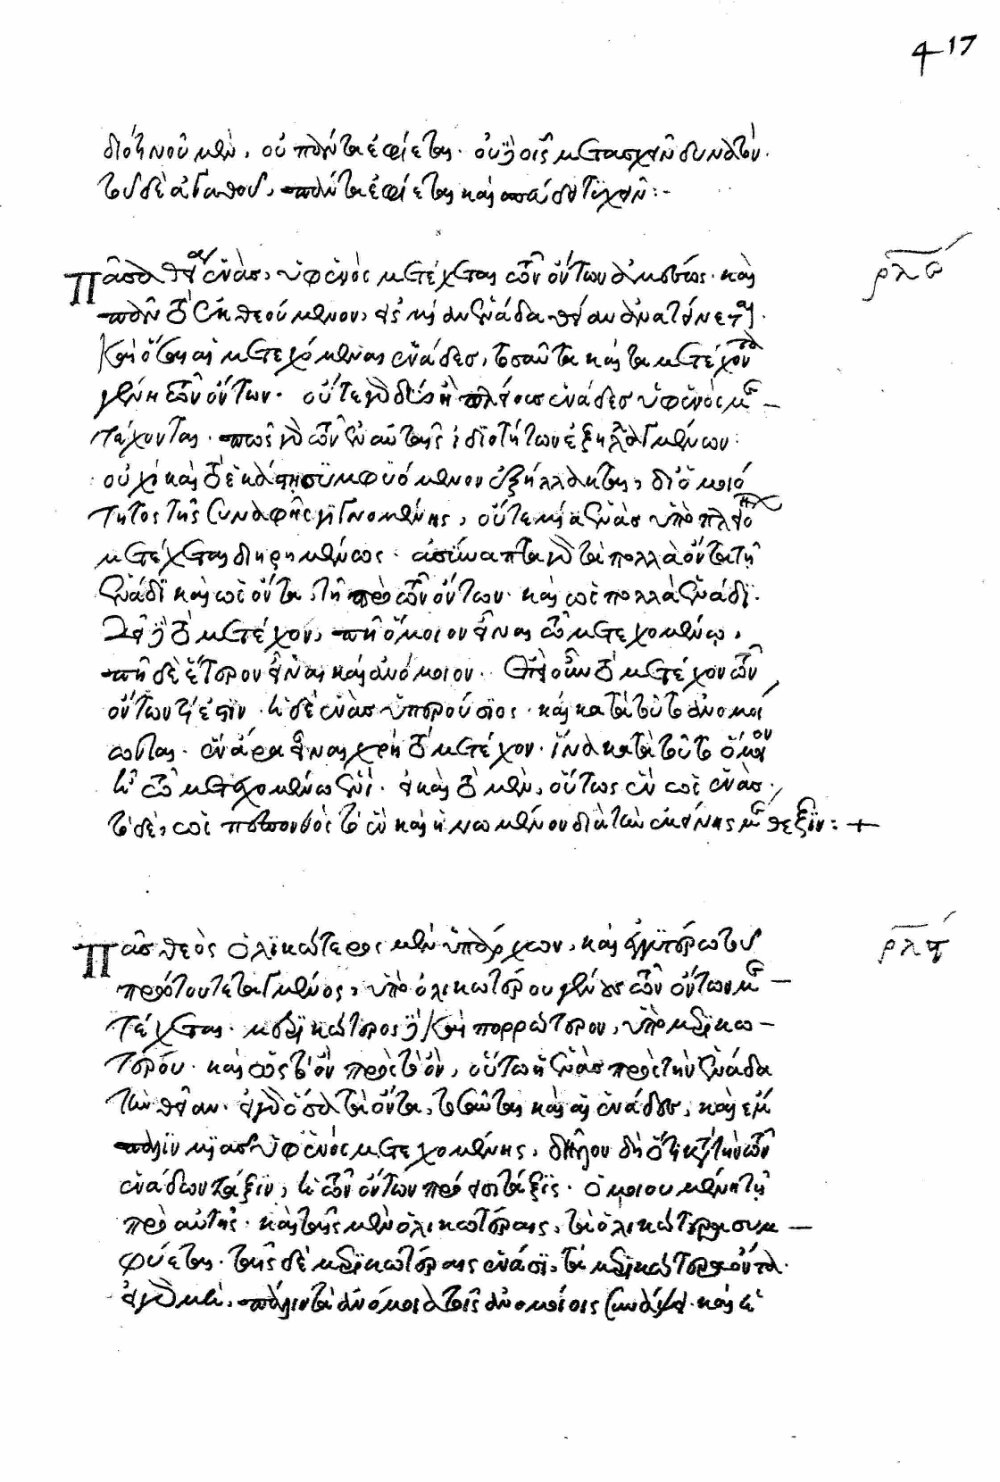 417
διότι νοῦ μὲν, οὐ πάντα ἐφίεται· οὐδ' οἷς μετασχεῖν δυνατόν.
τοῦ δὲ ἀγαθοῦ, πάντα ἐφίεται καὶ σπεύδει τυχεῖν:-
ρλε
Πᾶσα θεία ἑνὰς, ὑφ' ἑνός μετέχεται τῶν ὄντων ἀμέσως· καὶ
πᾶν τὸ ἐκθεούμενον, εἰς μίαν ἑνάδα θείαν ἀνατείνεται.
Καὶ ὅσαι αἱ μετεχόμεναι ἑνάδες, τοσαῦτα καὶ τὰ μετέχοντα
γένη τῶν ὄντων· οὔτε γὰρ δύο ἢ πλείους ἑνάδες ὑφ' ἑνός με
τέχονται. πῶς γὰρ τῶν ἐν αὐταῖς ἰδιοτήτων ἐξηλλαγμένων
οὐχὶ καὶ τὸ ἑκάστῃ συμφυόμενον ἐξήλλακται, δι' ὁμοιό
τητος τῆς συναφῆς γιγνομένης, οὔτε μία ἑνὰς ὑπὸ πλειόνων
μετέχεται διῃρημένως· ἀσύναπτα γὰρ τὰ πολλὰ ὄντα τῇ
ἑνάδι καὶ ὡς ὄντα, τῇ πρὸ τῶν ὄντων· καὶ ὡς πολλὰ ἑνάδι.
Δεῖ δὲ τὸ μετέχον, πῆ ὅμοιον εἶναι τῷ μετεχομένῳ,
πῆ δὲ ἕτερον εἶναι καὶ ἀνόμοιον. Ἐπεὶ οὖν τὸ μετέχον τῶν
ὄντων τί ἐστιν· ἡ δὲ ἑνὰς ὑπερούσιος· καὶ κατὰ τοῦτο ἀνομοί
ωνται· ἓν ἄρα εἶναι χρὴ τὸ μετέχον· ἵνα κατὰ τοῦτο ὅμοιον
ᾖ τῷ μετεχομένῳ ἑνί· εἰ καὶ τὸ μὲν, οὕτως ἓν ὡς ἑνὰς·
τὸ δὲ, ὡς πεπονθὸς τὸ ἓν καὶ ἡνωμένον διὰ τὴν ἐκείνης μέθεξιν:+
ρλς
Πᾶς θεὸς ὁλικώτερος μὲν ὑπάρχων, καὶ ἐγγυτέρω τοῦ
πρώτου τεταγμένος, ὑπὸ ὁλικωτέρου γένους τῶν ὄντων με
τέχεται· μερικώτερος δὲ καὶ πορρώτερον, ὑπὸ μερικω
τέρου· καὶ ὡς τὸ ὂν πρὸς τὸ ὂν, οὕτως ἡ ἑνὰς πρὸς τὴν ἑνάδα
τὴν θείαν. εἰ γὰρ ὅσα τὰ ὄντα, τοσαῦται καὶ αἱ ἑνάδες, καὶ ἔμ
παλιν μιᾶς ὑφ' ἑνός μετεχομένης, δῆλον δὴ ὅτι κατὰ τὴν τῶν
ἑνάδων τάξιν, ἡ τῶν ὄντων πρόεισι τάξις· ὁμοιουμένη τῇ
πρὸ αὐτῆς· καὶ ταῖς μὲν ὁλικωτέραις, τὰ ὁλικώτερα συμ
φύεται· ταῖς δὲ μερικωτέραις ἑνάσι, τὰ μερικώτερα ὄντα.
εἰ γὰρ μὴ, πάλιν τὰ ἀνόμοια τοῖς ἀνομοίοις συνάψει· καὶ ἡ